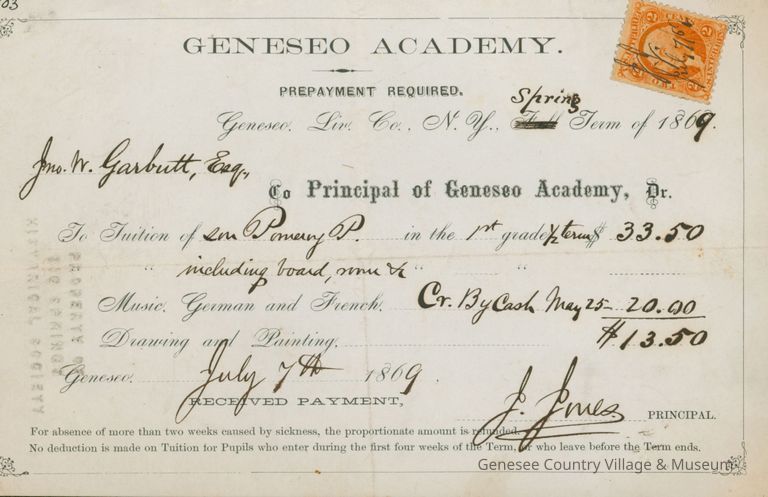 03
GENESEO ACADEMY.
PREPAYMENT REQUIRED.
Spring
Geneseo, Liv. Co., N. Y., Fall Term of 1869.
Jno. W. Garbutt, Esq.,
To Principal of Geneseo Academy, Dr.
To Tuition of son Pomeroy P. in the 1st grade ½ term $ 33.50
" including board, room & " "
Music, German and French, Cr. By Cash May 25 - 20.00
Drawing and Painting, $13.50
Geneseo, July 7th 1869.
RECEIVED PAYMENT,
J. Jones PRINCIPAL.
For absence of more than two weeks caused by sickness, the proportionate amount is refunded.
No deduction is made on Tuition for Pupils who enter during the first four weeks of the Term, or who leave before the Term ends.
PROPERTY OF
BIG SPRINGS
HISTORICAL SOCIETY
Genesee Country Village & Museum